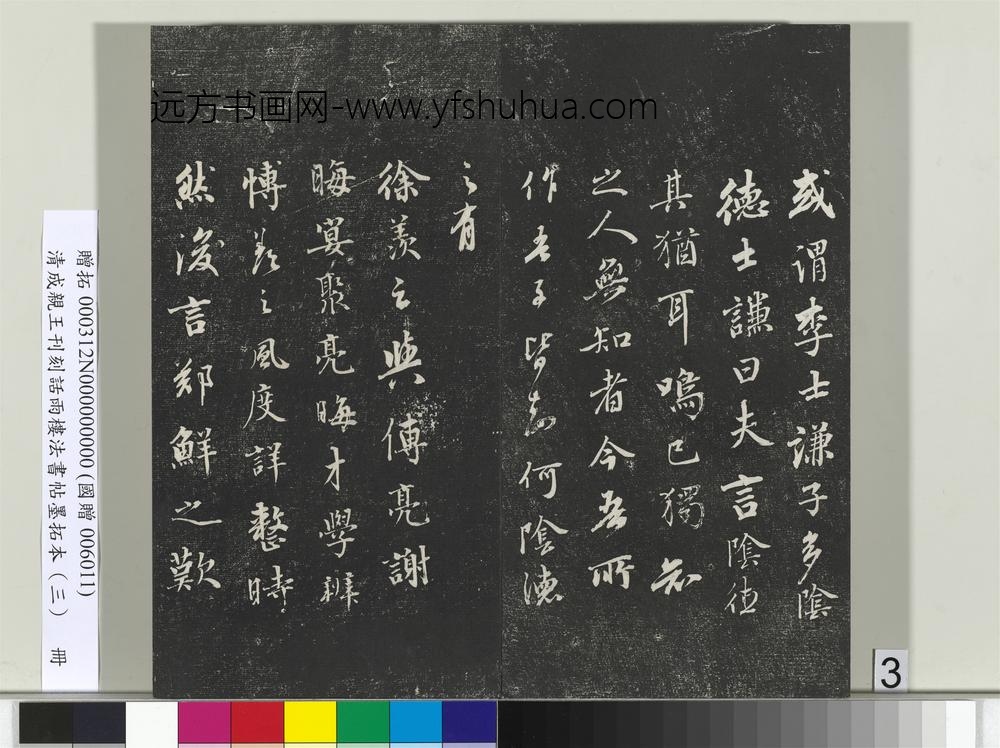 远方书画网-www.yfshuhua.com
或谓李士谦子多陰
德士謙曰夫言陰德
其猶耳鳴己獨知
之人無知者今吾所
作吾子皆知何陰德
之有
徐羨之與傅亮謝
晦宴聚亮晦才學辯
博羨之風度詳整時
然後言鄭鮮之歎
贈拓 000312N000000000(國贈 006011)
清成親王刊刻話雨樓法書帖墨拓本（三） 冊
3